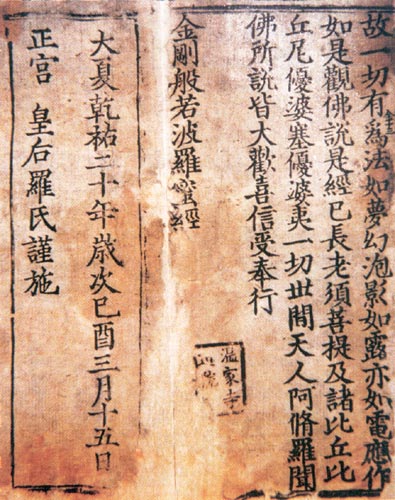 故一切有爲法如夢幻泡影如露亦如電應作
如是觀佛說是經已長老須菩提及諸比丘比
丘尼優婆塞優婆夷一切世間天人阿脩羅聞
佛所說皆大歡喜信受奉行
金剛般若波羅蜜經
溫家寺
大夏乾祐二十年歲次己酉三月十五日
正宫 皇后羅氏謹施